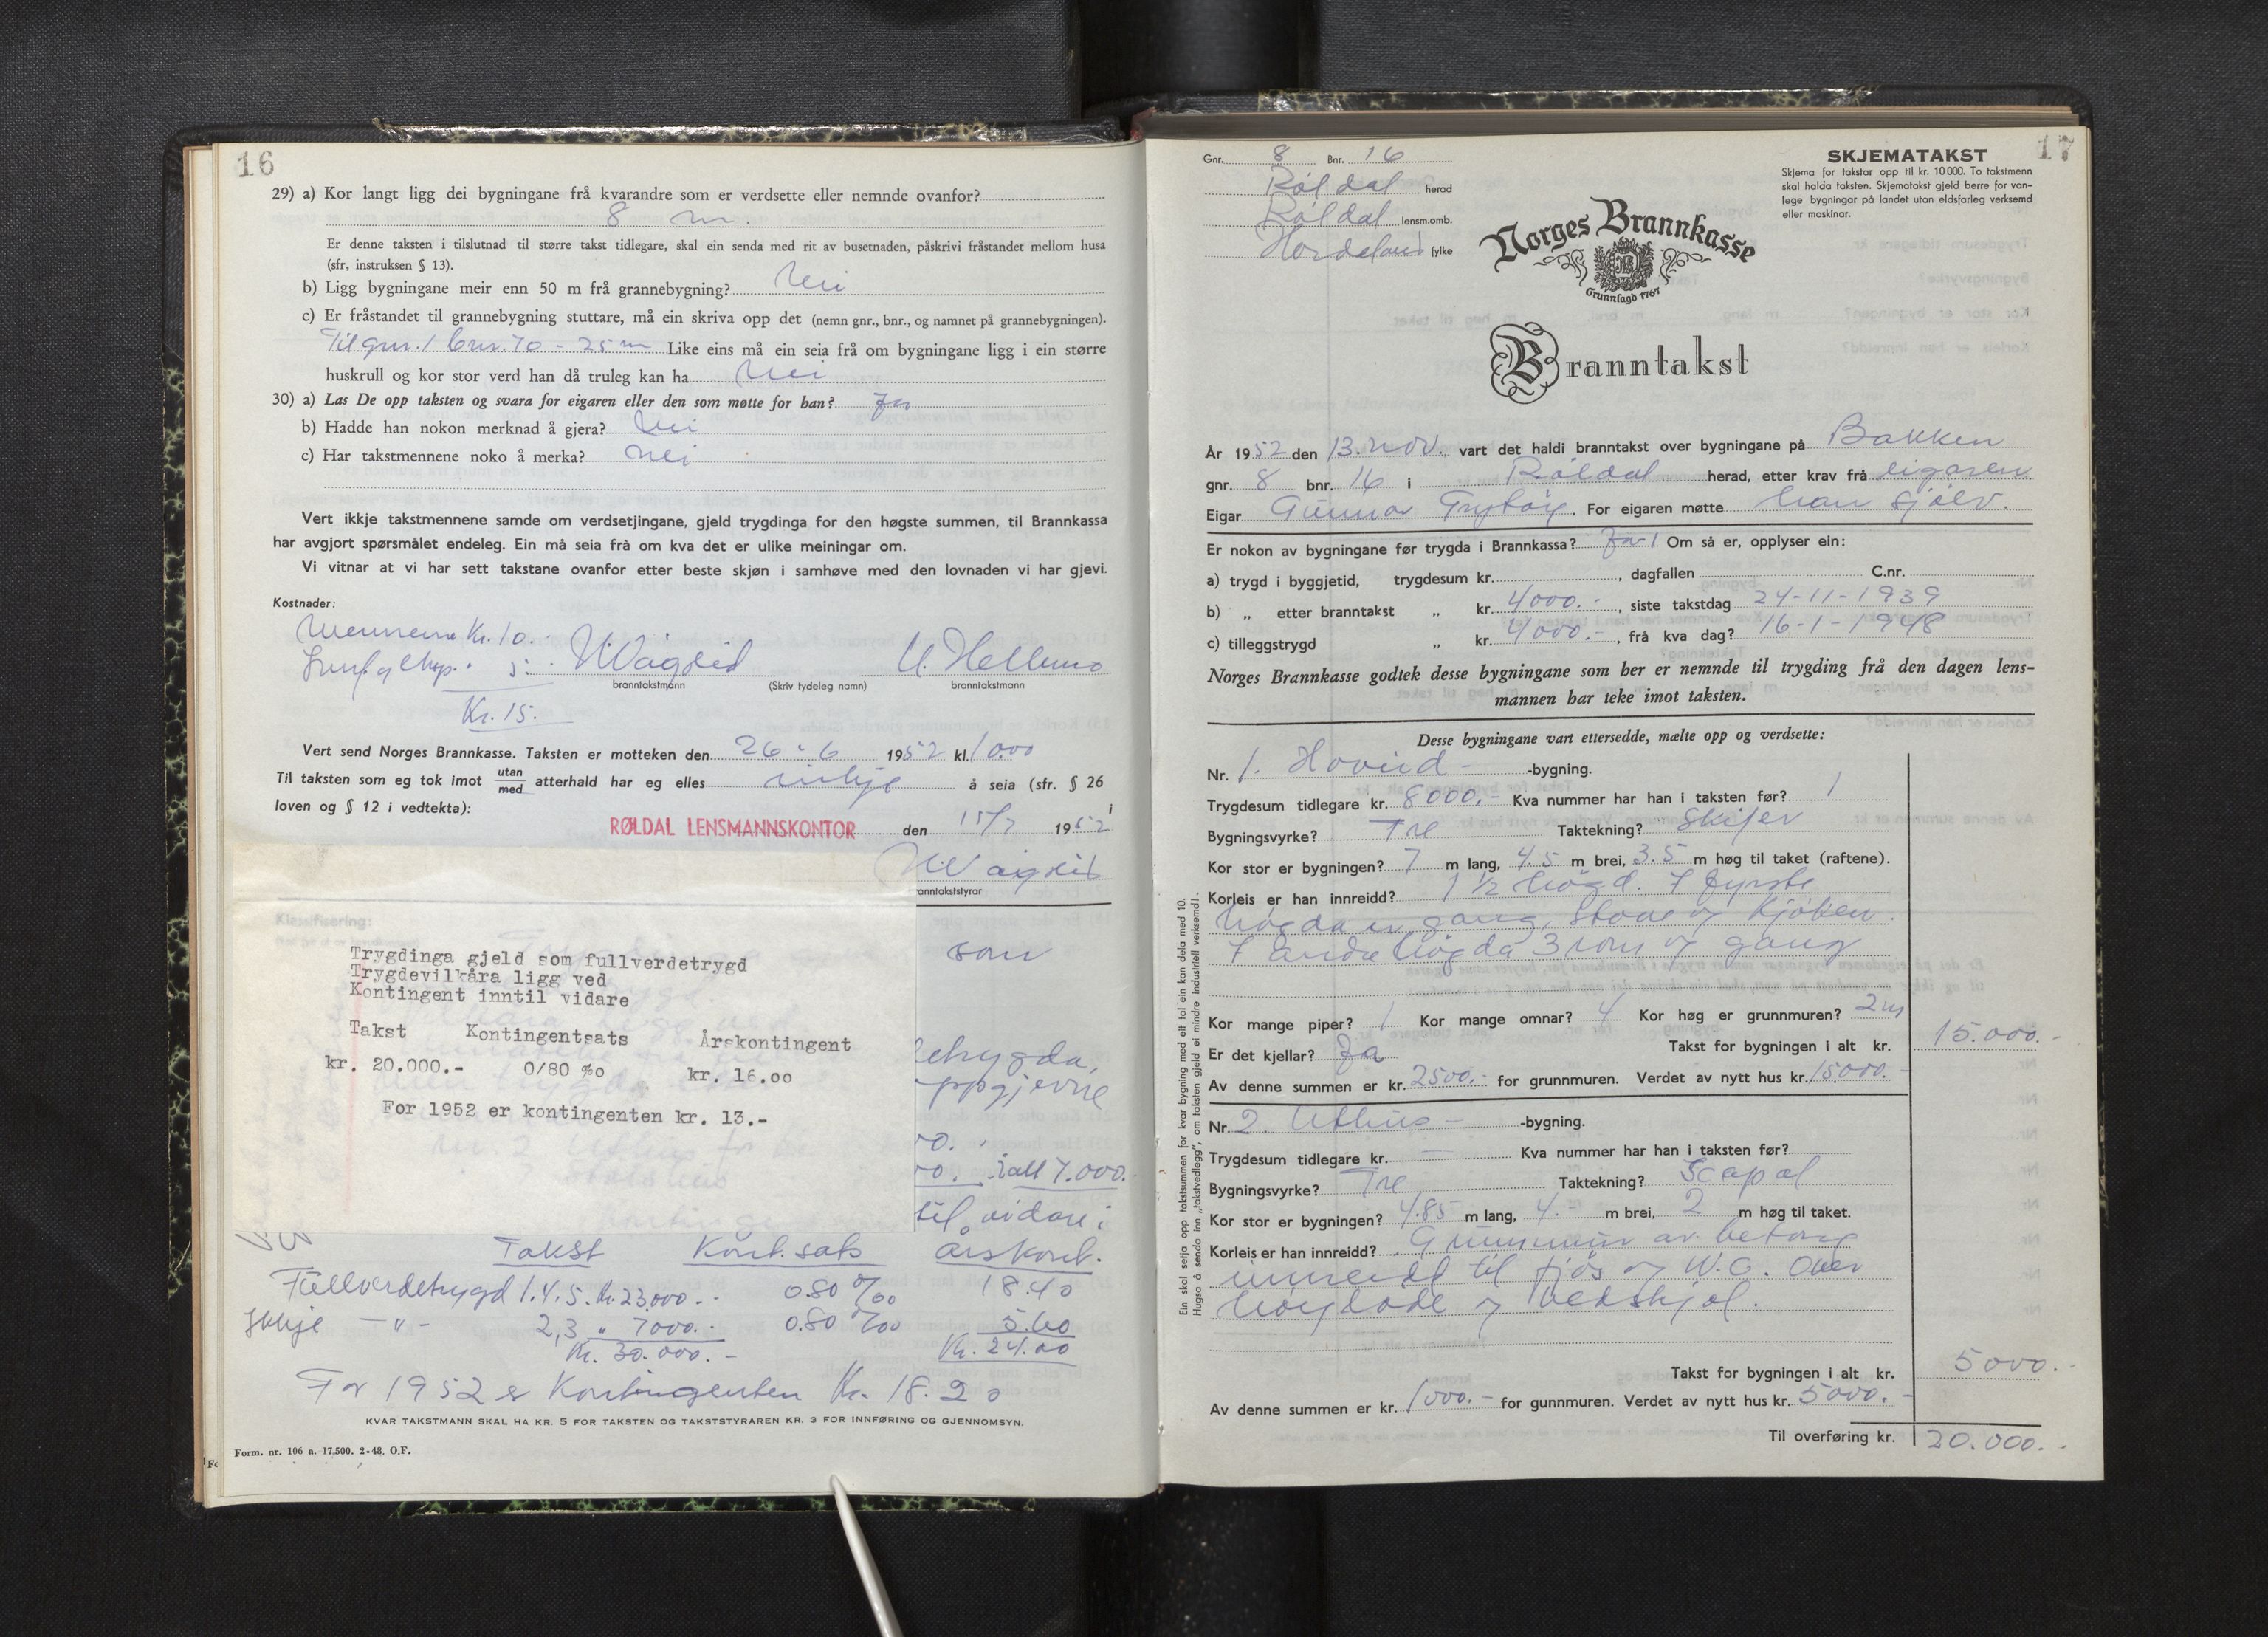 16
29) a) Kor langt ligg dei bygningane frå kvarandre som er verdsette eller nemnde ovanfor?
8 m.
Er denne taksten i tilslutnad til større takst tidlegare, skal ein senda med rit av busetnaden, påskrivi fråstandet mellom husa
(sfr, instruksen § 13).
b) Ligg bygningane meir enn 50 m frå grannebygning? Nei
c) Er fråstandet til grannebygning stuttare, må ein skriva opp det (nemn gnr., bnr., og namnet på grannebygningen).
Til gnr. 1 bnr. 70 - 25 m Like eins må ein seia frå om bygningane ligg i ein større
huskrull og kor stor verd han då truleg kan ha Nei
30) a) Las De opp taksten og svara for eigaren eller den som møtte for han? Ja
b) Hadde han nokon merknad å gjera? Nei
c) Har takstmennene noko å merka? Nei
Vert ikkje takstmennene samde om verdsetjingane, gjeld trygdinga for den høgste summen, til Brannkassa
har avgjort spørsmålet endeleg. Ein må seia frà om kva det er ulike meiningar om.
Vi vitnar at vi har sett takstane ovanfor etter beste skjøn i samhøve med den lovnaden vi har gjevi.
Kostnader:
Mennene Kr. 10.-
5.- NVågslid
branntakstmann (Skriv tydeleg namn) branntakstmann
Kr. 15.
Vert send Norges Brannkasse. Taksten er motteken den 26-6 1952 kl. 1000
Til taksten som eg tok imot utan/med atterhald har eg elles inkje å seia (sfr. § 26
loven og § 12 i vedtekta):
RØLDAL LENSMANNSKONTOR den 15/7 1952
NVågslid
ranntakststyrar
Klassifisering:
Trygdinga gjeld som fullverdetrygd
Trygdevilkåra ligg ved
Kontingent inntil vidare
Takst Kontingentsats Årskontingent
kr. 20.000.- 0/80 %o kr. 16.oo
For 1952 er kontingenten kr. 13.-
som
etrygda,
ppgjevne
i alt 7.000.-
til vidare:
Takst Kont.sats årskont.
Fullverdetrygd 1.4.5. kr. 23.000.- 0.80 %00 18.40
Ikkje -"- 2,3 " 7000.- 0.80 %00 5.60
Kr. 30.000.- Kr. 24.00
For 1952 er Kontingenten Kr. 18.20
KVAR TAKSTMANN SKAL HA KR. 5 FOR TAKSTEN OG TAKSTSTYRAREN KR. 3 FOR INNFØRING OG GJENNOMSYN.
Form. nr. 106 a. 17,500. 2-48. O.F.
17
Gnr. 8 Bnr. 16
Røldal herad
Røldal lensm.omb.
Hordaland fylke
SKJEMATAKST
Skjema for takstar opp til kr. 10 000. To takstmenn
skal halda taksten. Skjematakst gjeld berre for van-
lege bygningar på landet utan eldsfarleg verksemd
eller maskinar.
Norges Brannkasse
Grunnlagd 1767
Branntakst
År 1952 den 13. nov. vart det haldi branntakst over bygningane på Bakken
gnr. 8 bnr. 16 i Røldal herad, etter krav frå eigaren
Eigar Gunnar . For eigaren møtte han sjølv.
Er nokon av bygningane før trygda i Brannkassa? Ja 1 Om så er, opplyser ein:
a) trygd i byggjetid, trygdesum kr. , dagfallen C.nr.
b) „ etter branntakst „ kr. 4000.- , siste takstdag 24-11-1939
c) tilleggstrygd „ kr. 4000.- , frå kva dag? 16-1-1948
Norges Brannkasse godtek desse bygningane som her er nemnde til trygding frå den dagen lens-
mannen har teke imot taksten.
Desse bygningane vart ettersedde, mælte opp og verdsette:
Nr. 1. Hovud- -bygning.
Trygdesum tidlegare kr. 8000.- Kva nummer har han i taksten før? 1
Bygningsvyrke? Tre Taktekning? Skifer
Kor stor er bygningen? 7 m lang, 4.5 m brei, 3.5 m høg til taket (raftene).
Korleis er han innreidd? 1 1/2 høgd. I fyrste
høgda er gang, Stove og Kjøken.
I andre høgda 3 rom og gang
Kor mange piper? 1 Kor mange omnar? 4 Kor høg er grunnmuren? 2 m
Er det kjellar? Ja Takst for bygningen i alt kr. 15.000.-
Av denne summen er kr. 2500.- for grunnmuren. Verdet av nytt hus kr. 15000.-
Nr. 2. Uthus- -bygning.
Trygdesum tidlegare kr. — Kva nummer har han i taksten før?
Bygningsvyrke? Tre Taktekning? Scapal
Kor stor er bygningen? 4.85 m lang, 4.- m brei, 2 m høg til taket.
Korleis er han innreidd? Grunnmur av betong
innreidd til fjøs og W.C. Over
høyløde og vedskjol.
Takst for bygningen i alt kr. 5000.-
Av denne summen er kr. 1000.- for gunnmuren. Verdet av nytt hus kr. 5000.-
Til overføring kr. 20.000.-
Ein skal setja opp takstsummen for kvar bygning med eit tal ein kan dela med 10.
Hugso å senda inn „takstvedlegg", om taksten gjeld ei mindre industriell verksemd!